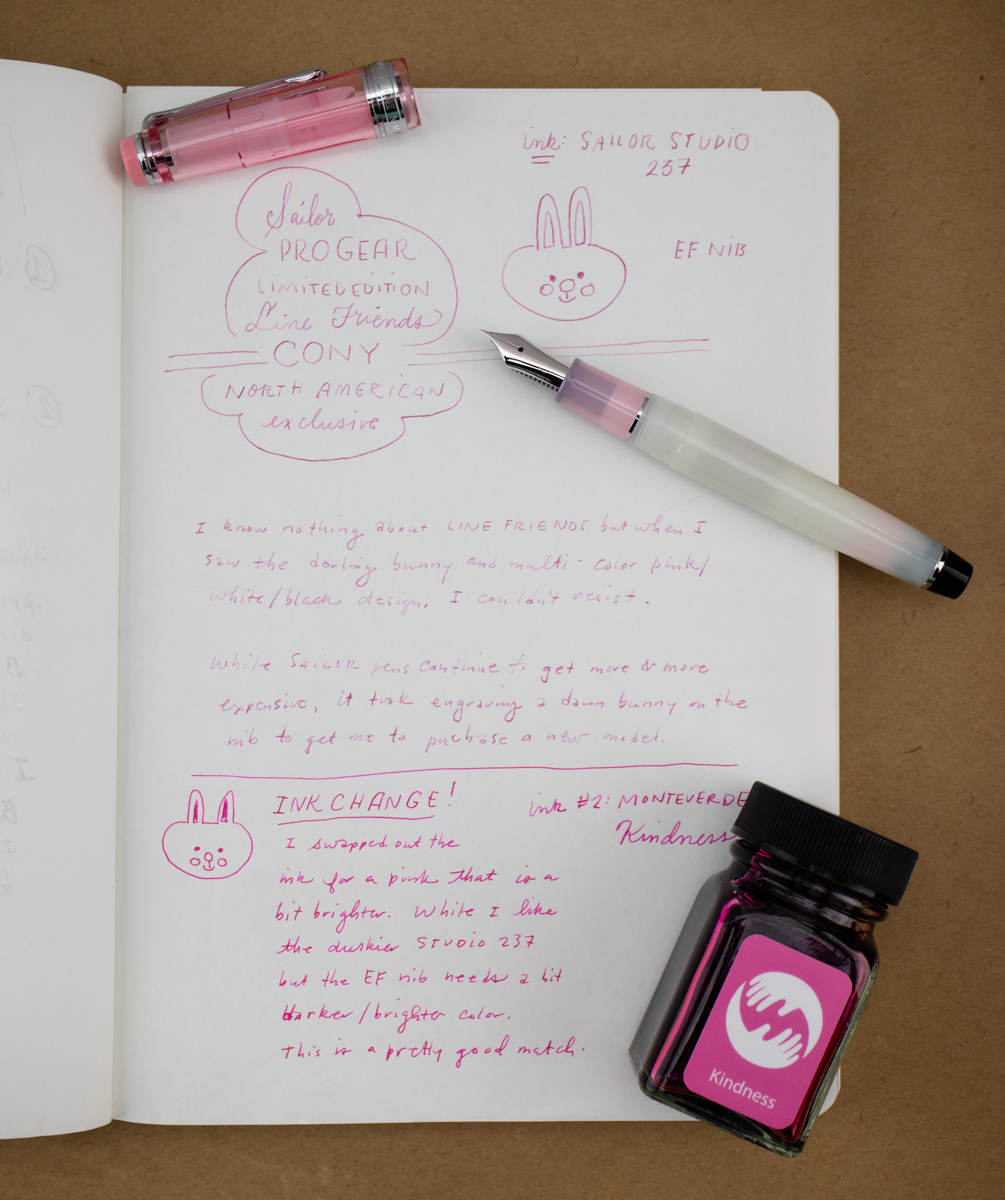 ink: SAILOR STUDIO
237
EF NIB
Sailor
PRO GEAR
LIMITED EDITION
Line Friends
CONY
NORTH AMERICAN
exclusive
I know nothing about LINE FRIENDS but when I
saw the darling bunny and multi-color pink/
white/black design, I couldn't resist.
While SAILOR pens continue to get more & more
expensive, it took engraving a damn bunny on the
nib to get me to puchase a new model.
INK CHANGE!
ink #2: MONTEVERDE
Kindness
I swapped out the
ink for a pink that is a
bit brighter. While I like
the duskier STUDIO 237
but the EF nib needs a bit
darker/brighter color.
This is a pretty good match.
Kindness